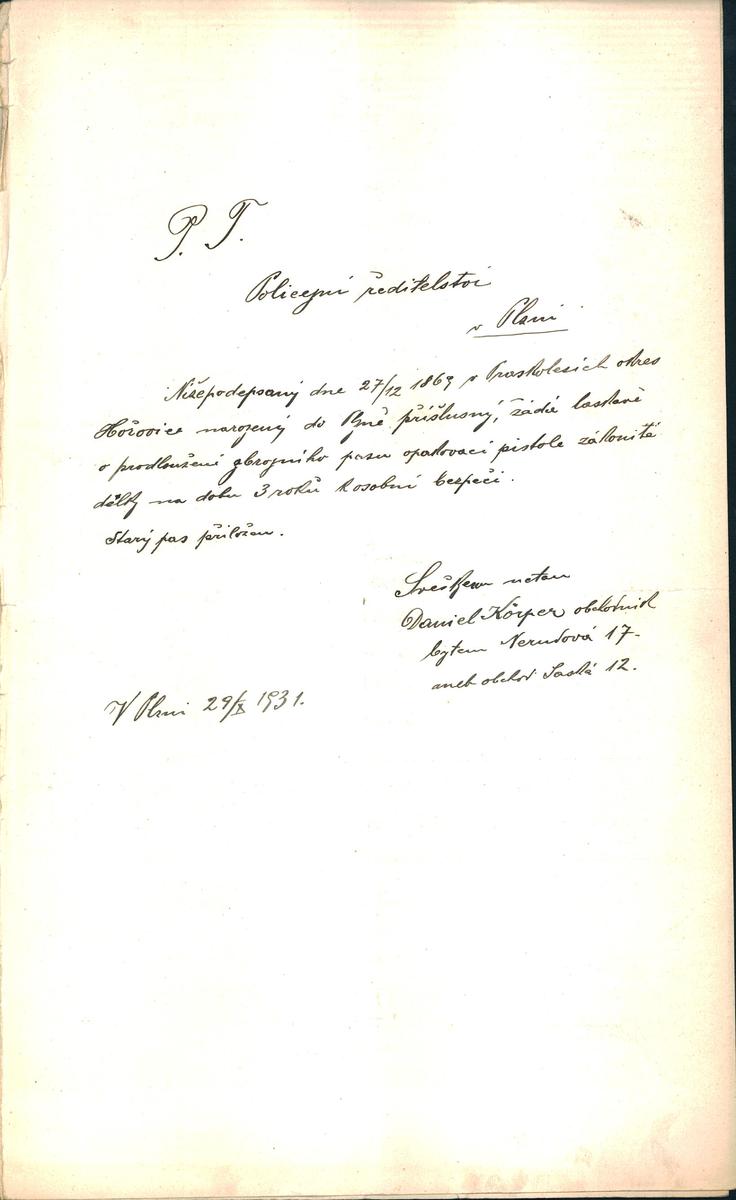 P. T.
Policejní ředitelství
v Plzni
Nížepodepsaný dne 27/12 1869 v Praskolesích okres
Hořovice narozený do Plzně příslušný, žádá laskavě
o prodloužení zbrojního pasu opakovací pistole zákonité
délky na dobu 3 roků k osobní bezpečí.
Starý pas přiložen.
Daniel Körper obchodník
bytem Nerudová 17-
aneb obchod Saská 12.
V Plzni 29/X 1931.